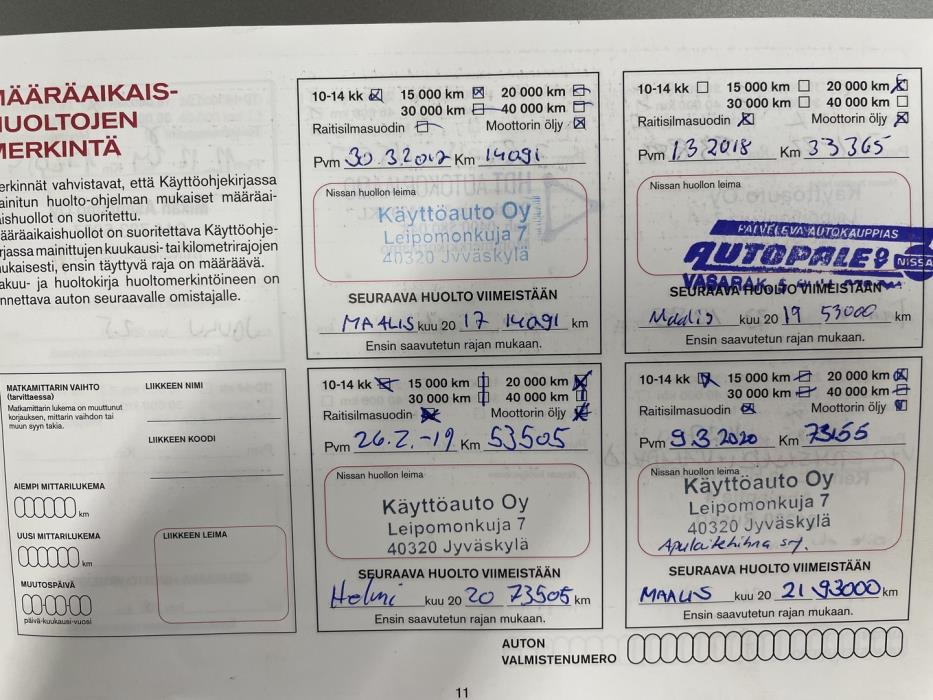 MÄÄRÄAIKAIS-
HUOLTOJEN
MERKINTÄ
erkinnät vahvistavat, että Käyttöohjekirjassa
ainitun huolto-ohjelman mukaiset määräai-
aishuollot on suoritettu.
ääräaikaishuollot on suoritettava Käyttöohje-
rjassa mainittujen kuukausi- tai kilometrirajojen
ukaisesti, ensin täyttyvä raja on määräävä.
akuu- ja huoltokirja huoltomerkintöineen on
nnettava auton seuraavalle omistajalle.
10-14 kk 15 000 km 20 000 km
30 000 km 40 000 km
Raitisilmasuodin Moottorin öljy
Pvm 30.3.2017 Km 14091
Nissan huollon leima
Käyttöauto Oy
Leipomonkuja 7
40320 Jyväskylä
SEURAAVA HUOLTO VIIMEISTÄÄN
MAALIS kuu 20 17 14091 km
Ensin saavutetun rajan mukaan.
10-14 kk 15 000 km 20 000 km
30 000 km 40 000 km
Raitisilmasuodin Moottorin öljy
Pvm 1.3.2018 Km 33365
Nissan huollon leima
PALVELEVA AUTOKAUPPIAS
NISSA
SEURAAVA HUOLTO VIIMEISTÄÄN
Maalis kuu 20 19 53000 km
Ensin saavutetun rajan mukaan.
MATKAMITTARIN VAIHTO
(tarvittaessa)
Matkamittarin lukema on muuttunut
korjauksen, mittarin vaihdon tai
muun syyn takia.
LIIKKEEN NIMI
LIIKKEEN KOODI
AIEMPI MITTARILUKEMA
km
UUSI MITTARILUKEMA
km
MUUTOSPÄIVÄ
päivä-kuukausi-vuosi
LIIKKEEN LEIMA
10-14 kk 15 000 km 20 000 km
30 000 km 40 000 km
Raitisilmasuodin Moottorin öljy
Pvm 26.2.-19 Km 53505
Nissan huollon leima
Käyttöauto Oy
Leipomonkuja 7
40320 Jyväskylä
SEURAAVA HUOLTO VIIMEISTÄÄN
Helmi kuu 20 20 73505 km
Ensin saavutetun rajan mukaan.
10-14 kk 15 000 km 20 000 km
30 000 km 40 000 km
Raitisilmasuodin Moottorin öljy
Pvm 9.3.2020 Km 73155
Nissan huollon leima
Käyttöauto Oy
Leipomonkuja 7
40320 Jyväskylä
Apulaitehihna srt.
SEURAAVA HUOLTO VIIMEISTÄÄN
MAALIS kuu 20 21 93000 km
Ensin saavutetun rajan mukaan.
AUTON
VALMISTENUMERO
11